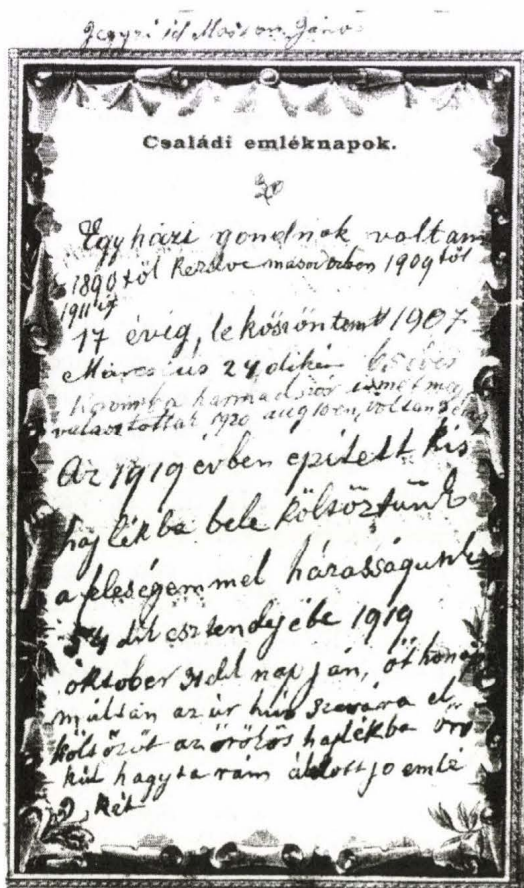 Jegyzi id Mozson János
Családi emléknapok.
Egyházi gondnok voltam
1890től kezdve másodorban 1909től
1911ig
17 évig, leköszöntem 1907
Március 24dikén 65 éves
koromba harmadszor ismét meg
választottak 1920 aug 10en, voltam
Az 1919 évben épitett kis
hajlékba bele költöztünk
a feleségemmel házasságunk
54 dik esztendejébe 1919
október 31dik napján, öt hónap
múltán az úr hívó szavára el
költözöt az örökös hajlékba örö
kül hagyta rám áldott jo emlé
két